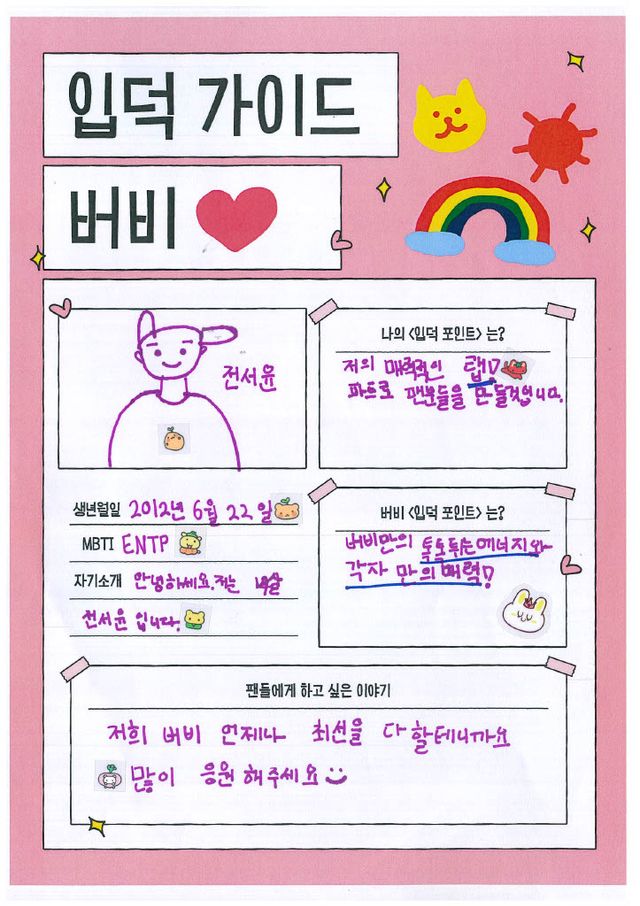 입덕 가이드
버비
전서윤
나의 <입덕 포인트> 는?
저의 매력적인 랩
파트로 팬분들을 만들것입니다.
생년월일 2012년 6월 22일
MBTI ENTP
자기소개 안녕하세요.저는
전서윤 입니다.
버비 <입덕 포인트> 는?
버비만의 톡톡튀는에너지와
각자 만의 매력!
팬들에게 하고 싶은 이야기
저희 버비 언제나 최선을 다할테니까요
많이 응원해주세요